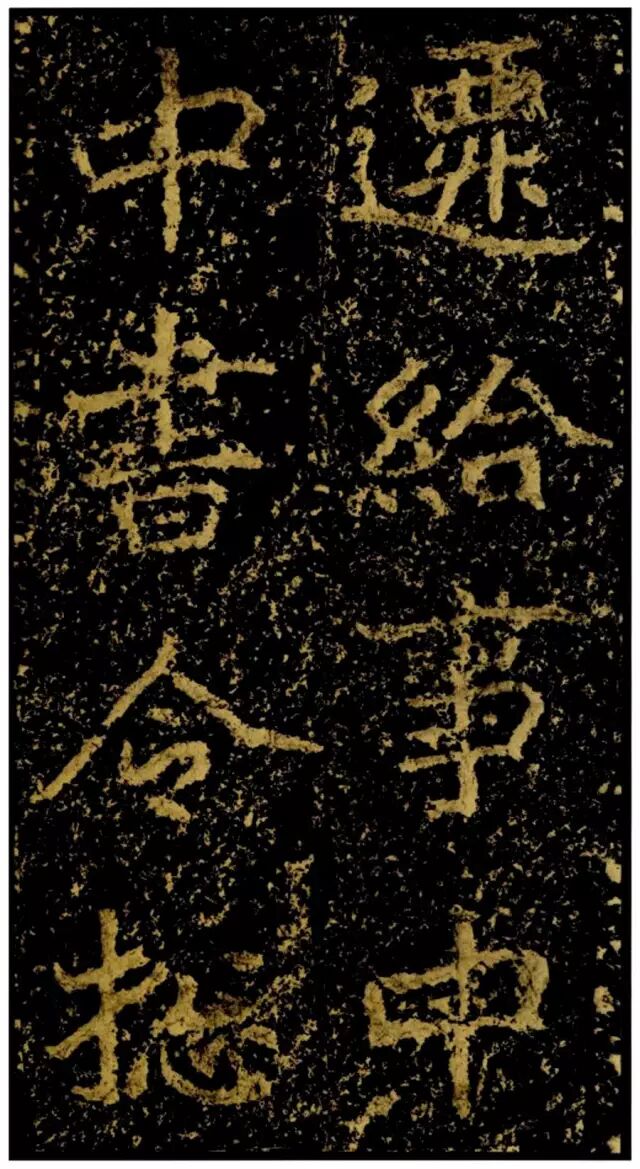 遷給事中
中書令摠